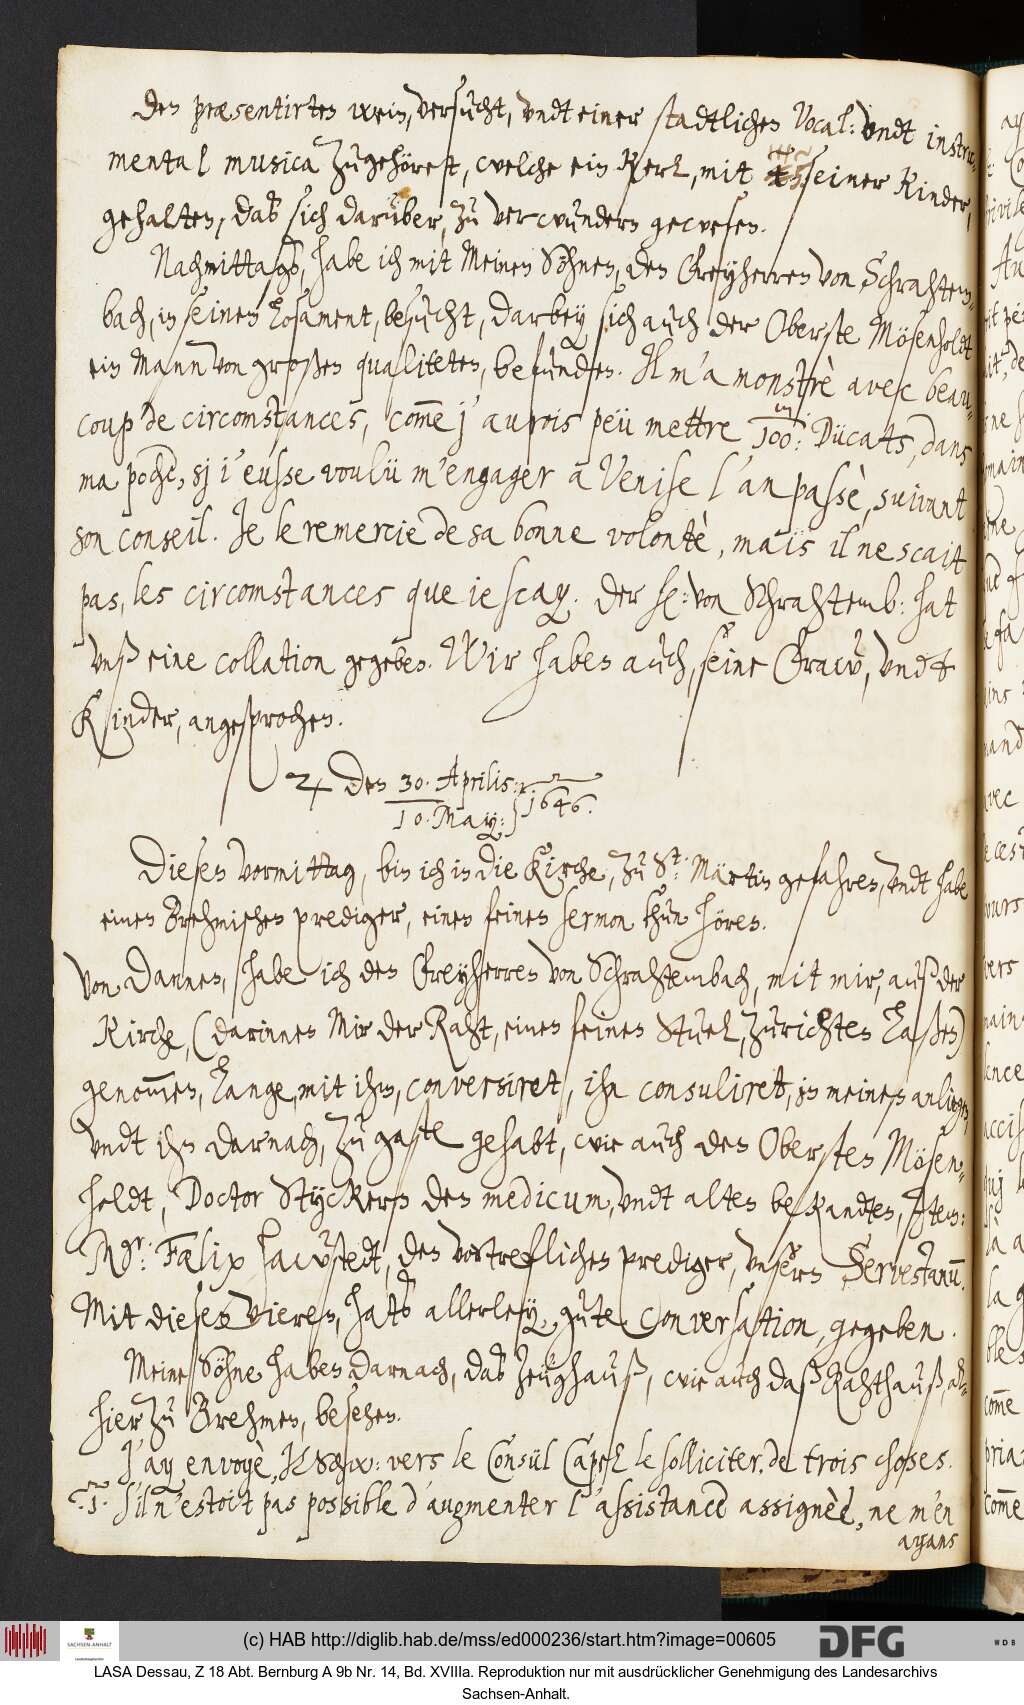 den præsentirten wein, versucht, undt einer stadtlichen Vocal: undt instru-
mental musica zugehöret, welche ein Kerl, mit seiner Kinder,
gehalten, daß sich darüber, zu verwundern gewesen.
Nachmittags, habe ich mit Meinen Söhnen, den Freyherren von Schrahtem-
bach, in seinem Losament, besucht, darbey sich auch der Oberste Mösenholdt
ein Mann von großen qualiteten, befunden. Il m'a monstrè avec beau-
coup de circomstances, com̄e j'aurois peü mettre 100 m: Dücats, dans
ma poche, sj i'eusse voulü m'engager a Venise l'an passè, suivant
son conseil. Je le remercie de sa bonne volontè, mais il ne scait
pas, les circomstances que ie scay. Der h: von Schrahtemb: hat
unß eine collation gegeben. Wir haben auch, seine Fraw, undt
Kinder, angesprochen.
♃ den 30. Aprilis:
10. May: 1646.
Diesen vormittag, bin ich in die Kirche, zu St: Märtin gefahren, undt habe
einen Brehmischen prediger, einen feinen sermon thun hören.
Von dannen, habe ich den Freyherren von Schrahtembach, mit mir, auß der
Kirche, (darinnen Mir der Raht, einen feinen Stuel, zurichten laßen)
genom̄en, Lange, mit ihm, conversiret, ihn consuliret, in meinem anliegen,
undt ihn darnach, zu gaste gehabt, wie auch den Obersten Mösen-
holdt, Doctor Stÿckern den medicum, undt alten bekandten, Item:
Mgr: Fælix Hawstedt, den vortreflichen prediger, unsern Servestanum̄.
Mit diesen Vieren, hats allerley, gute Conversation, gegeben.
Meine Söhne haben darnach, das Zeughauß, wie auch daß Rahthauß, al-
hier zu Brehmen, besehen.
J'ay envoyè, vers le Consül Capel le solliciter, de trois choses.
.1. s'il n'estoit pas possible d'augmenter l'assistance assignèe, ne m'en
ayans
(c) HAB http://diglib.hab.de/mss/ed000236/start.htm?image=00605
SACHSEN-ANHALT
DFG
WDB
LASA Dessau, Z 18 Abt. Bernburg A 9b Nr. 14, Bd. XVIIIa. Reproduktion nur mit ausdrücklicher Genehmigung des Landesarchivs
Sachsen-Anhalt.